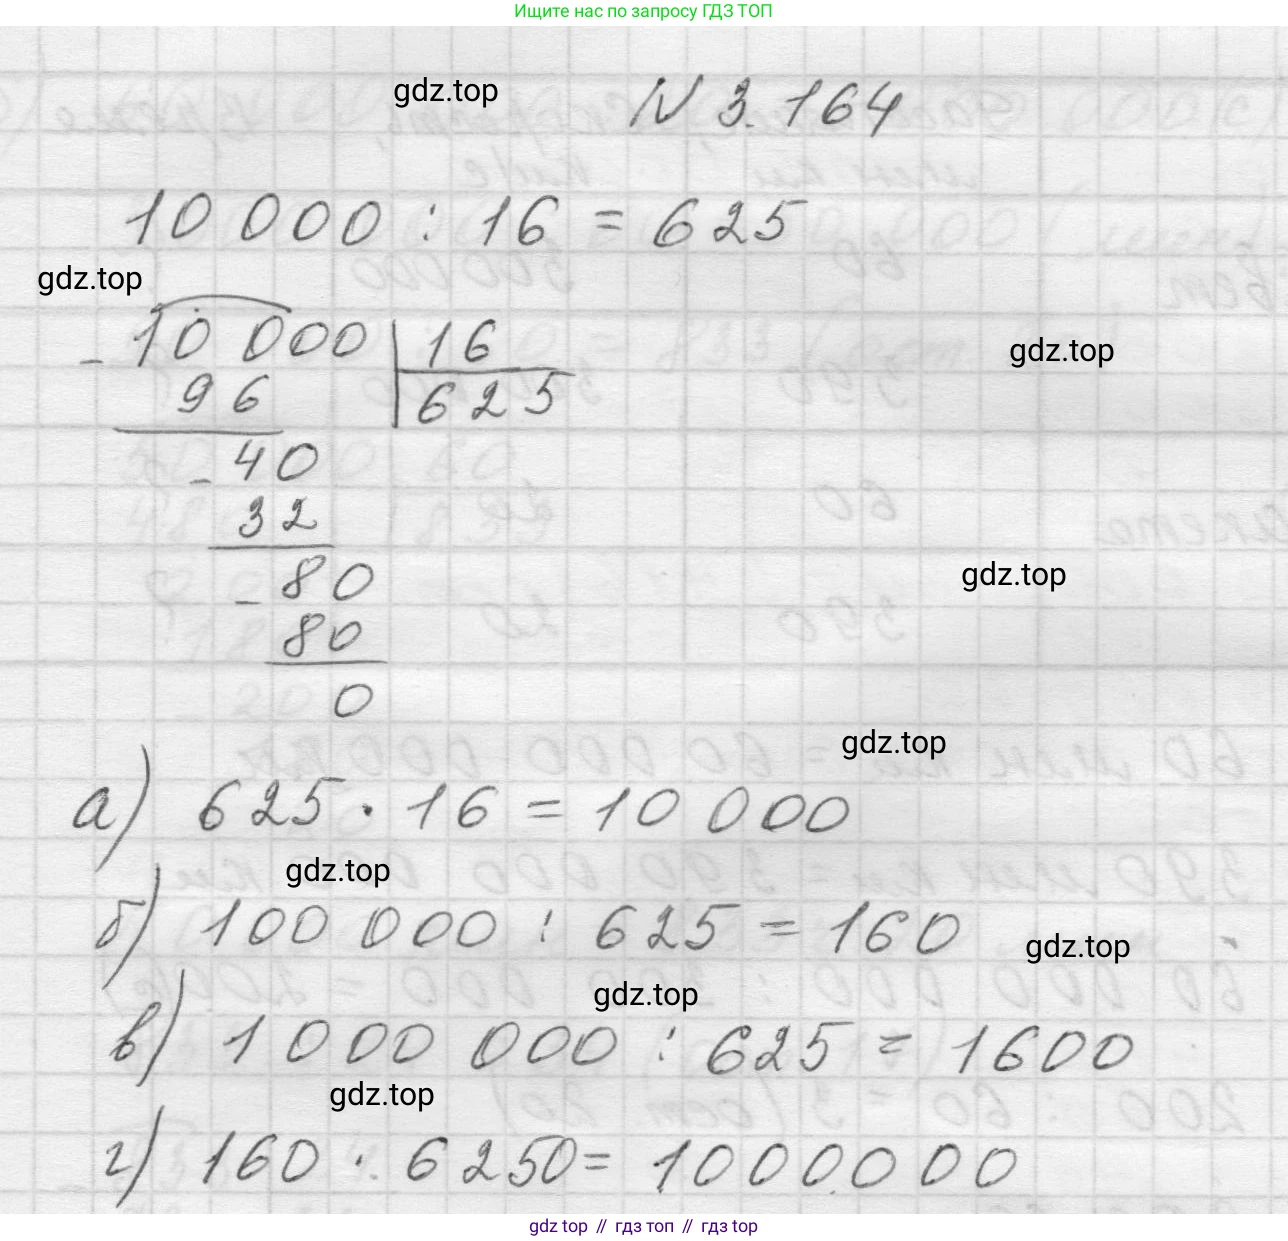 Ищите нас по запросу ГДЗ ТОП
gdz.top
N 3.164
10 000 : 16 = 625
gdz.top
- 10 000 | 16
gdz.top
96 | 625
- 40
32
gdz.top
- 80
80
0
gdz.top
а) 625 · 16 = 10 000
gdz.top
б) 100 000 : 625 = 160
gdz.top
gdz.top
в) 1 000 000 : 625 = 1600
gdz.top
г) 160 · 6250 = 1000000
gdz top // гдз топ // gdz top